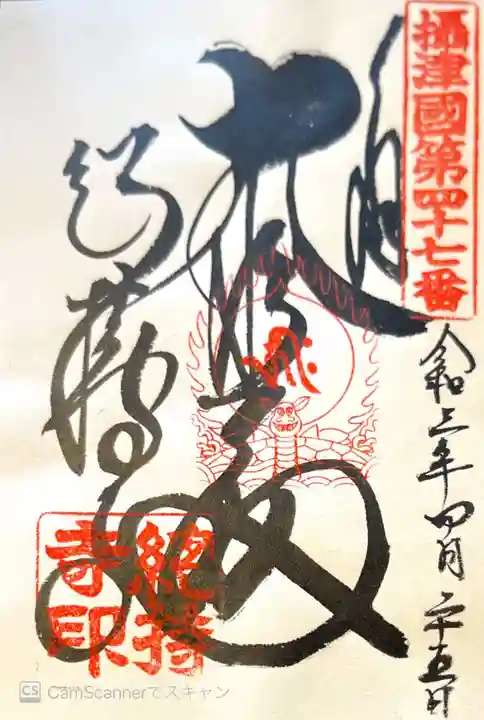 攝津國第四十七番
令和三年四月二十五日
大悲殿
総持寺
總持
寺印
CS CamScannerでスキャン